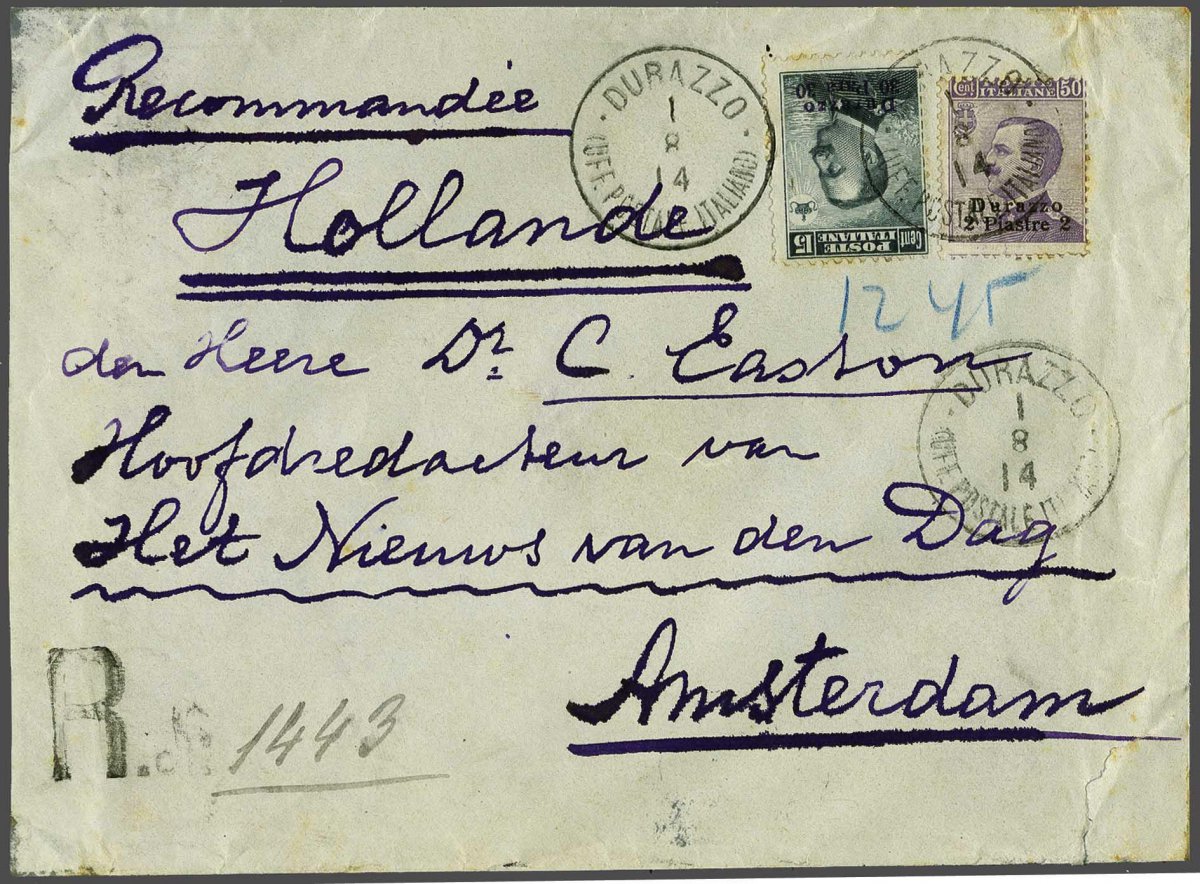 Recommandée
Hollande
den Heere Dr. C. Easton
Hoofdredacteur van
Het Nieuws van den Dag
Amsterdam
R. No. 1443
1245
DURAZZO
1
8
14
(UFF. POSTALE ITALIANO)
Durazzo
30 Parà 30
POSTE
ITALIANE
Cent 15
Cent 50
ITALIANE
Durazzo
2 Piastre 2
DURAZZO
8
14
(UFF. POSTALE ITALIANO)
DURAZZO
1
8
14
(UFF. POSTALE ITALIANO)